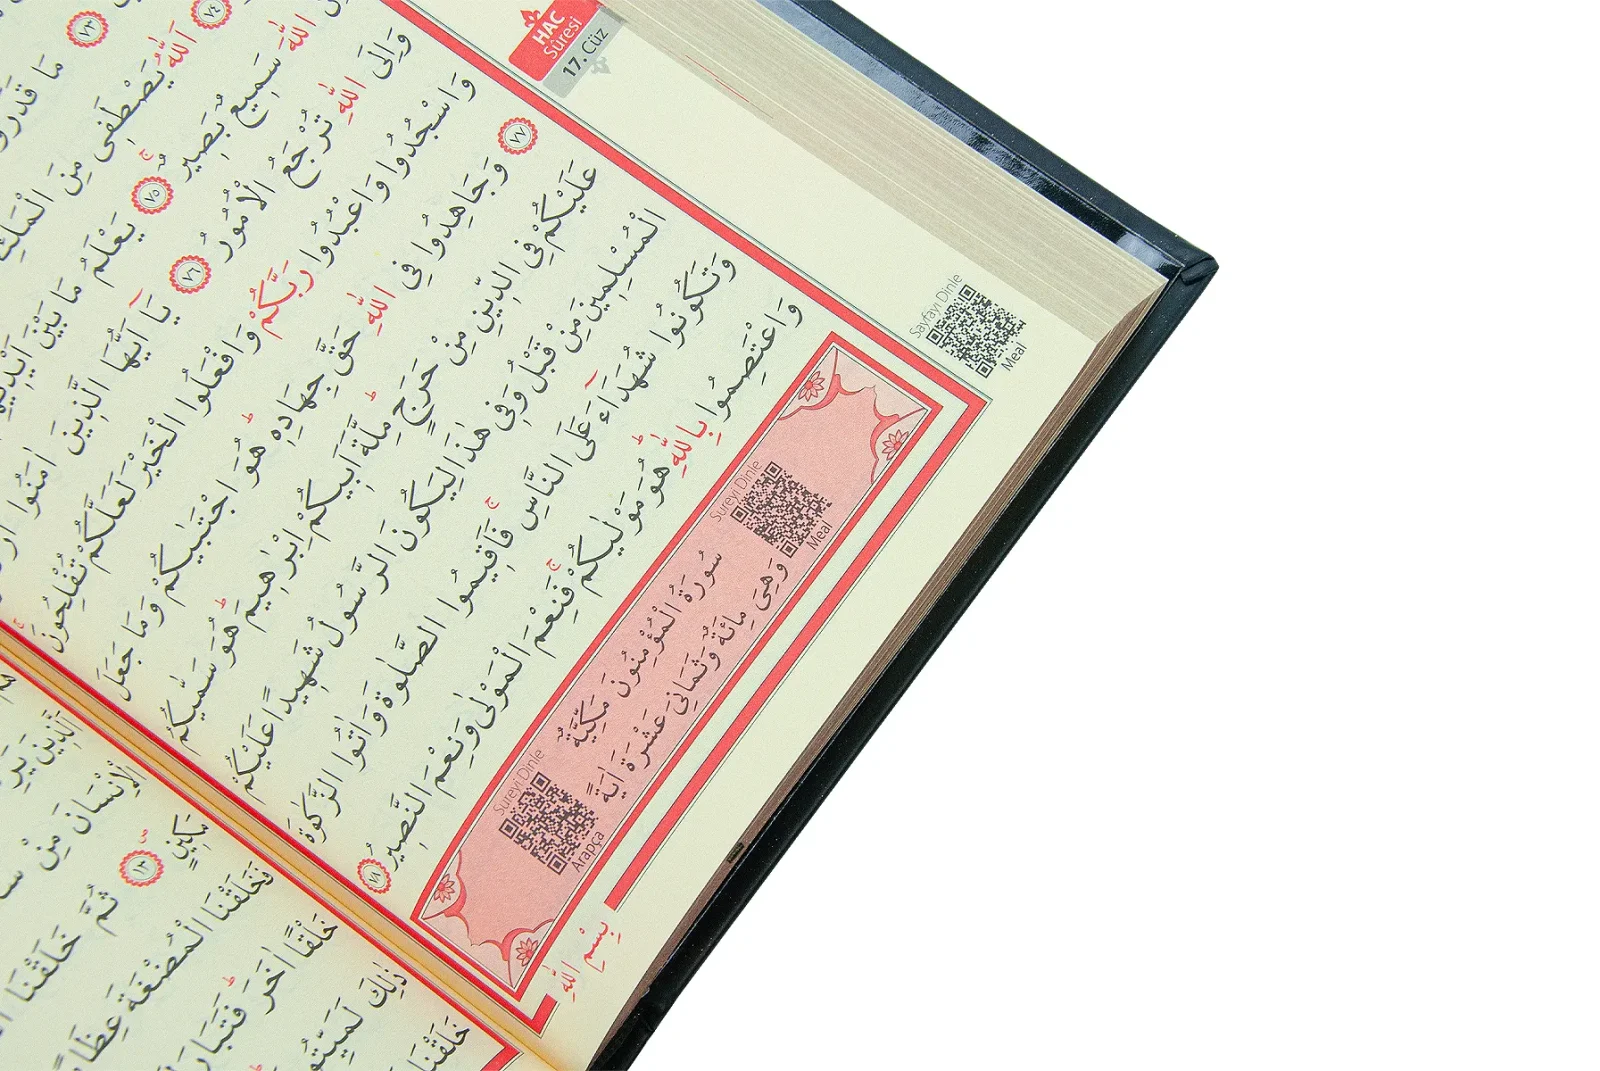 HAC
Sûresi
17. Cüz
مَا قَدَرُو
٧٣
٧٤
اَللّٰهُ يَصْطَف۪ي مِنَ الْمَلٰٓئِ
اللّٰهَ سَم۪يعٌ بَص۪يرٌ ٧٥ يَعْلَمُ مَا بَيْنَ اَيْد۪يهِمْ
وَاِلَى اللّٰهِ تُرْجَعُ الْاُمُورُ ٧٦ يَٓا اَيُّهَا الَّذ۪ينَ اٰمَنُوا ارْ
وَاسْجُدُوا وَاعْبُدُوا رَبَّكُمْ وَافْعَلُوا الْخَيْرَ لَعَلَّكُمْ تُفْلِحُونَ
٧٧ وَجَاهِدُوا فِي اللّٰهِ حَقَّ جِهَادِه۪ هُوَ اجْتَبٰيكُمْ وَمَا جَعَلَ
عَلَيْكُمْ فِي الدّ۪ينِ مِنْ حَرَجٍ مِلَّةَ اَب۪يكُمْ اِبْرٰه۪يمَ هُوَ سَمّٰيكُمُ
الْمُسْلِم۪ينَ مِنْ قَبْلُ وَف۪ي هٰذَا لِيَكُونَ الرَّسُولُ شَه۪يدًا عَلَيْكُمْ
وَتَكُونُوا شُهَدَٓاءَ عَلَى النَّاسِ فَاَق۪يمُوا الصَّلٰوةَ وَاٰتُوا الزَّكٰوةَ
وَاعْتَصِمُوا بِاللّٰهِ هُوَ مَوْلٰيكُمْ فَنِعْمَ الْمَوْلٰى وَنِعْمَ النَّص۪يرُ ٧٨
Sayfayı Dinle
Meal
Sureyi Dinle
Meal
سُورَةُ الْمُؤْمِنُونَ مَكِّيَّةٌ
وَهِيَ مِائَةٌ وَثَمَانِيَ عَشْرَةَ اٰيَةً
Sûreyi Dinle
Arapça
بِسْمِ اللّٰهِ
الَّذ۪ينَ يَرِ
الْاِنْسَانَ مِنْ
مَك۪ينٍ ١٣ ثُمَّ خَلَقْنَا
فَخَلَقْنَا الْمُضْغَةَ عِظَامًا
خَلْقًا اٰخَرَ فَتَبَارَكَ
ذٰلِكَ لَمَيِّتُونَ
خَلَقْنَا